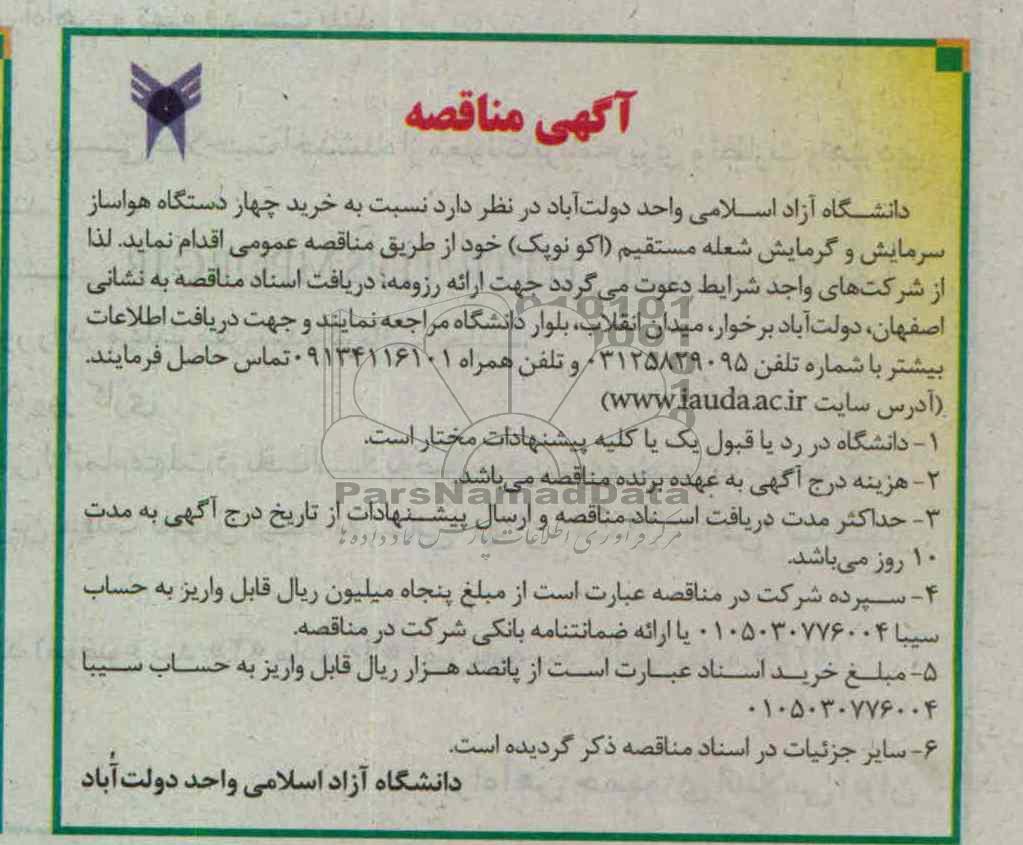 آگهی مناقصه
دانشگاه آزاد اسلامی واحد دولت‌آباد در نظر دارد نسبت به خرید چهار دستگاه هواساز
سرمایش و گرمایش شعله مستقیم (اکو نوپک) خود از طریق مناقصه عمومی اقدام نماید. لذا
از شرکت‌های واجد شرایط دعوت می‌گردد جهت ارائه رزومه، دریافت اسناد مناقصه به نشانی
اصفهان، دولت‌آباد برخوار، میدان انقلاب، بلوار دانشگاه مراجعه نمایند و جهت دریافت اطلاعات
بیشتر با شماره تلفن ۰۳۱۲۵۸۲۹۰۹۵ و تلفن همراه ۰۹۱۳۴۱۱۶۱۰۱ تماس حاصل فرمایند.
(آدرس سایت www.iauda.ac.ir)
۱- دانشگاه در رد یا قبول یک یا کلیه پیشنهادات مختار است.
۲- هزینه درج آگهی به عهده برنده مناقصه می‌باشد.
ParsNamadData
۳- حداکثر مدت دریافت اسناد مناقصه و ارسال پیشنهادات از تاریخ درج آگهی به مدت
مرکز فرآوری اطلاعات پارس نماد داده ها
۱۰ روز می‌باشد.
۴- سپرده شرکت در مناقصه عبارت است از مبلغ پنجاه میلیون ریال قابل واریز به حساب
سیبا ۰۱۰۵۰۳۰۷۷۶۰۰۴ یا ارائه ضمانتنامه بانکی شرکت در مناقصه.
۵- مبلغ خرید اسناد عبارت است از پانصد هزار ریال قابل واریز به حساب سیبا
۰۱۰۵۰۳۰۷۷۶۰۰۴
۶- سایر جزئیات در اسناد مناقصه ذکر گردیده است.
دانشگاه آزاد اسلامی واحد دولت‌آباد